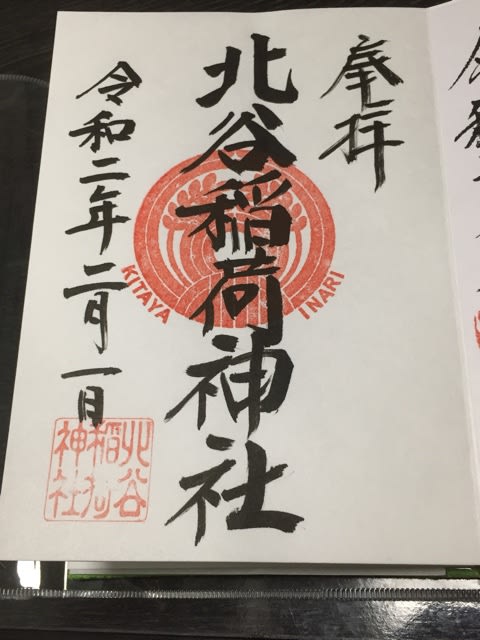 奉拝
北谷稲荷神社
KITAYA INARI
令和二年二月一日
北谷
稲荷
神社